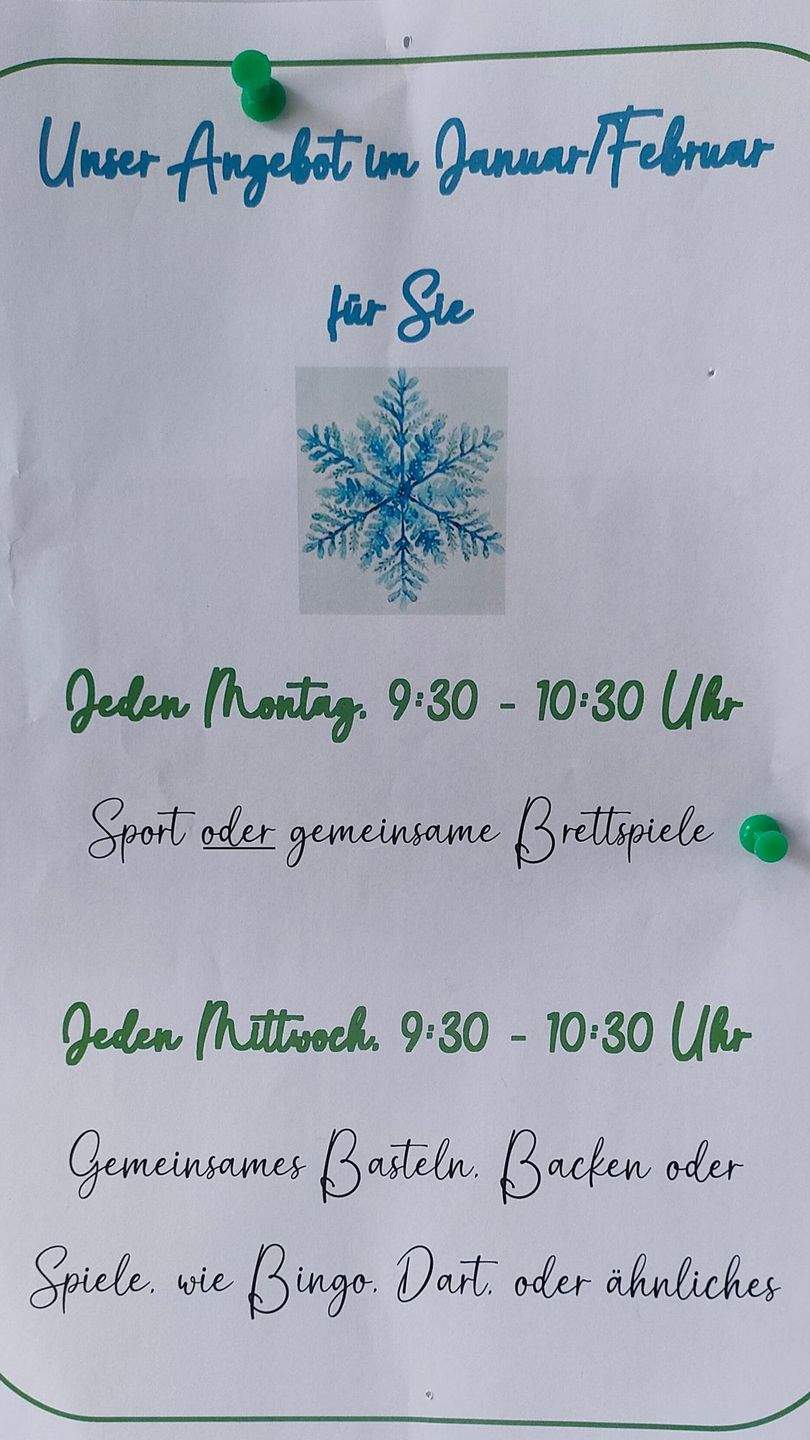 Unser Angebot im Januar/Februar
für Sie
Jeden Montag, 9:30 - 10:30 Uhr
Sport oder gemeinsame Brettspiele
Jeden Mittwoch, 9:30 - 10:30 Uhr
Gemeinsames Basteln, Backen oder
Spiele, wie Bingo, Dart, oder ähnliches